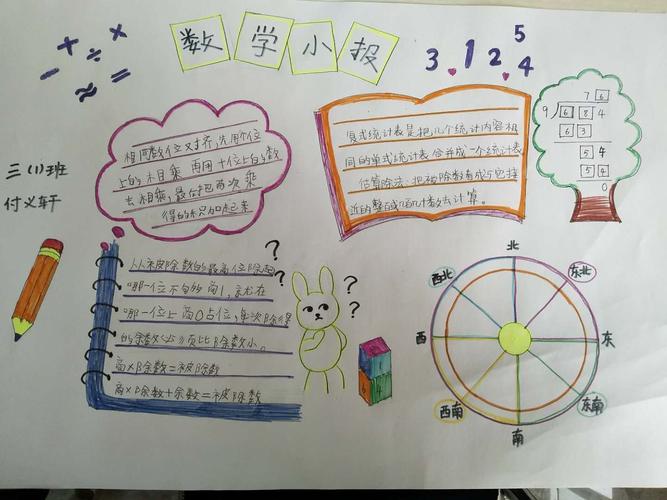 数学小报
+ ÷ × - ≈ =
3.12.45
三(1)班
付义轩
相同数位对齐,先用个位
上的数相乘 再用十位上的数
去相乘,最后把两次乘
得的积加起来
复式统计表是把几个统计内容相
同的单式统计表合并成一个统计表
估算除法:把被除数看成与它接
近的整百
数去计算。
7 6
9 6 8 4
6 3
5 4
5 4
0
从被除数的最高位除起
哪一位不够商1,就在
哪一位上商0占位,每次除得
的余数必须比除数小。
商×除数=被除数
商×除数+余数=被除数
? ? ? ?
北
西北
东北
西
东
西南
东南
南